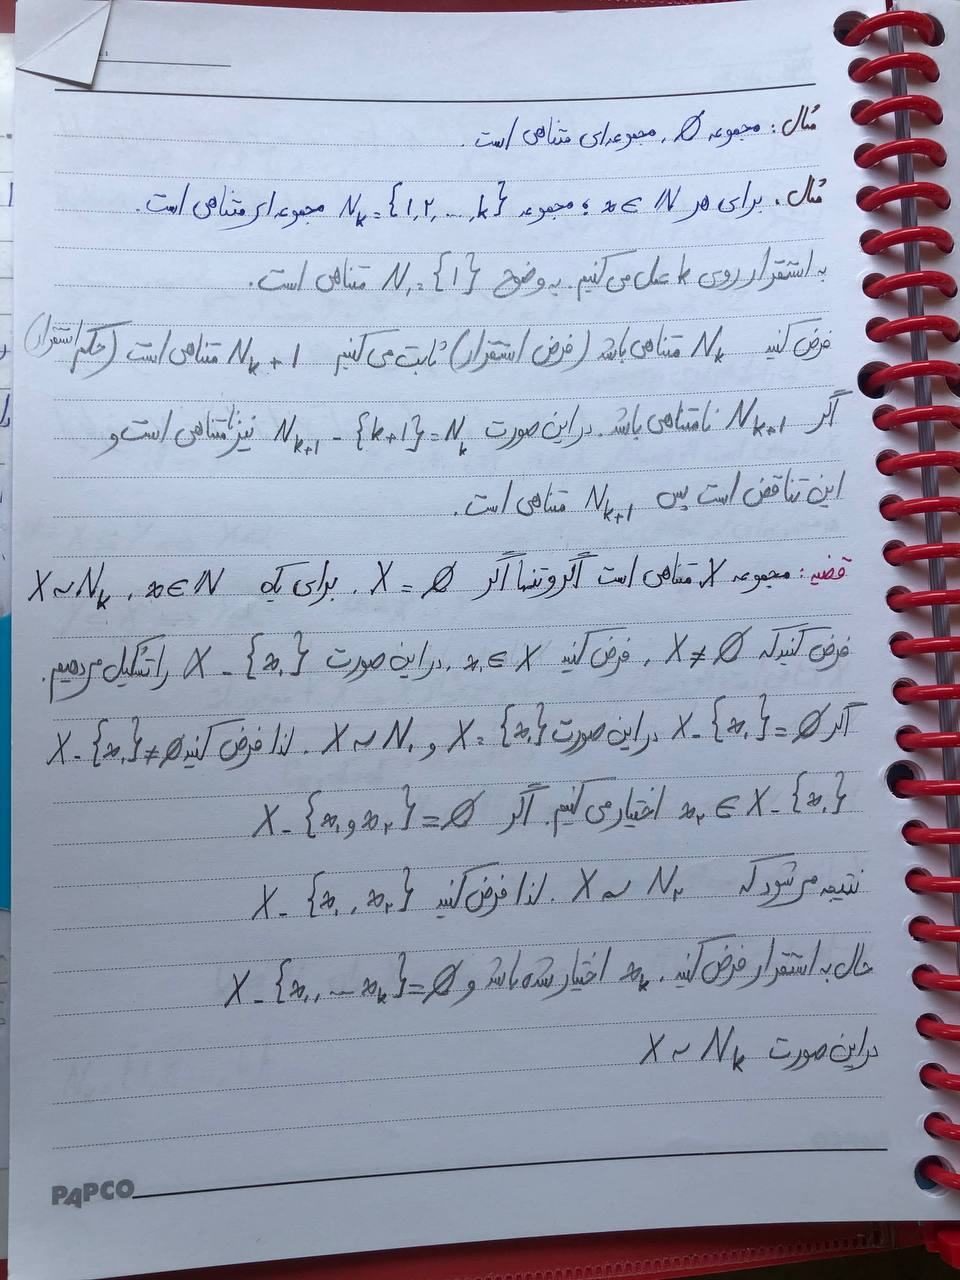 مثال: مجموعه ∅، مجموعه‌ای متناهی است.
مثال. برای هر x ∈ N؛ مجموعه N_k = {1, ۲, ..., k} مجموعه‌ای متناهی است.
به استقرار روی k عمل می‌کنیم. به وضوح N_۱ = {1} متناهی است.
فرض کنید N_k متناهی باشد (فرض استقرار) ثابت می‌کنیم N_k + 1 متناهی است (حکم استقرار)
اگر N_{k+1} نامتناهی باشد. در این صورت N_{k+1} - {k+1} = N_k نیز نامتناهی است و
این تناقض است پس N_{k+1} متناهی است.
قضیه: مجموعه X متناهی است اگر و تنها اگر X = ∅، برای یک x ∈ N، X ~ N_k
فرض کنید که X ≠ ∅، فرض کنید x_۱ ∈ X، در این صورت X - {x_۱} را تشکیل می‌دهیم.
اگر X - {x_۱} = ∅ در این صورت X = {x_۱} و X ~ N_۱. لذا فرض کنید X - {x_۱} ≠ ∅
x_۲ ∈ X - {x_۱} اختیار می‌کنیم. اگر X - {x_۱ و x_۲} = ∅
نتیجه می‌شود که X ~ N_۲. لذا فرض کنید X - {x_۱, x_۲}
حال به استقرار فرض کنید. x_k اختیار شده باشد و X - {x_۱, ... x_k} = ∅
در این صورت X ~ N_k
PAPCO